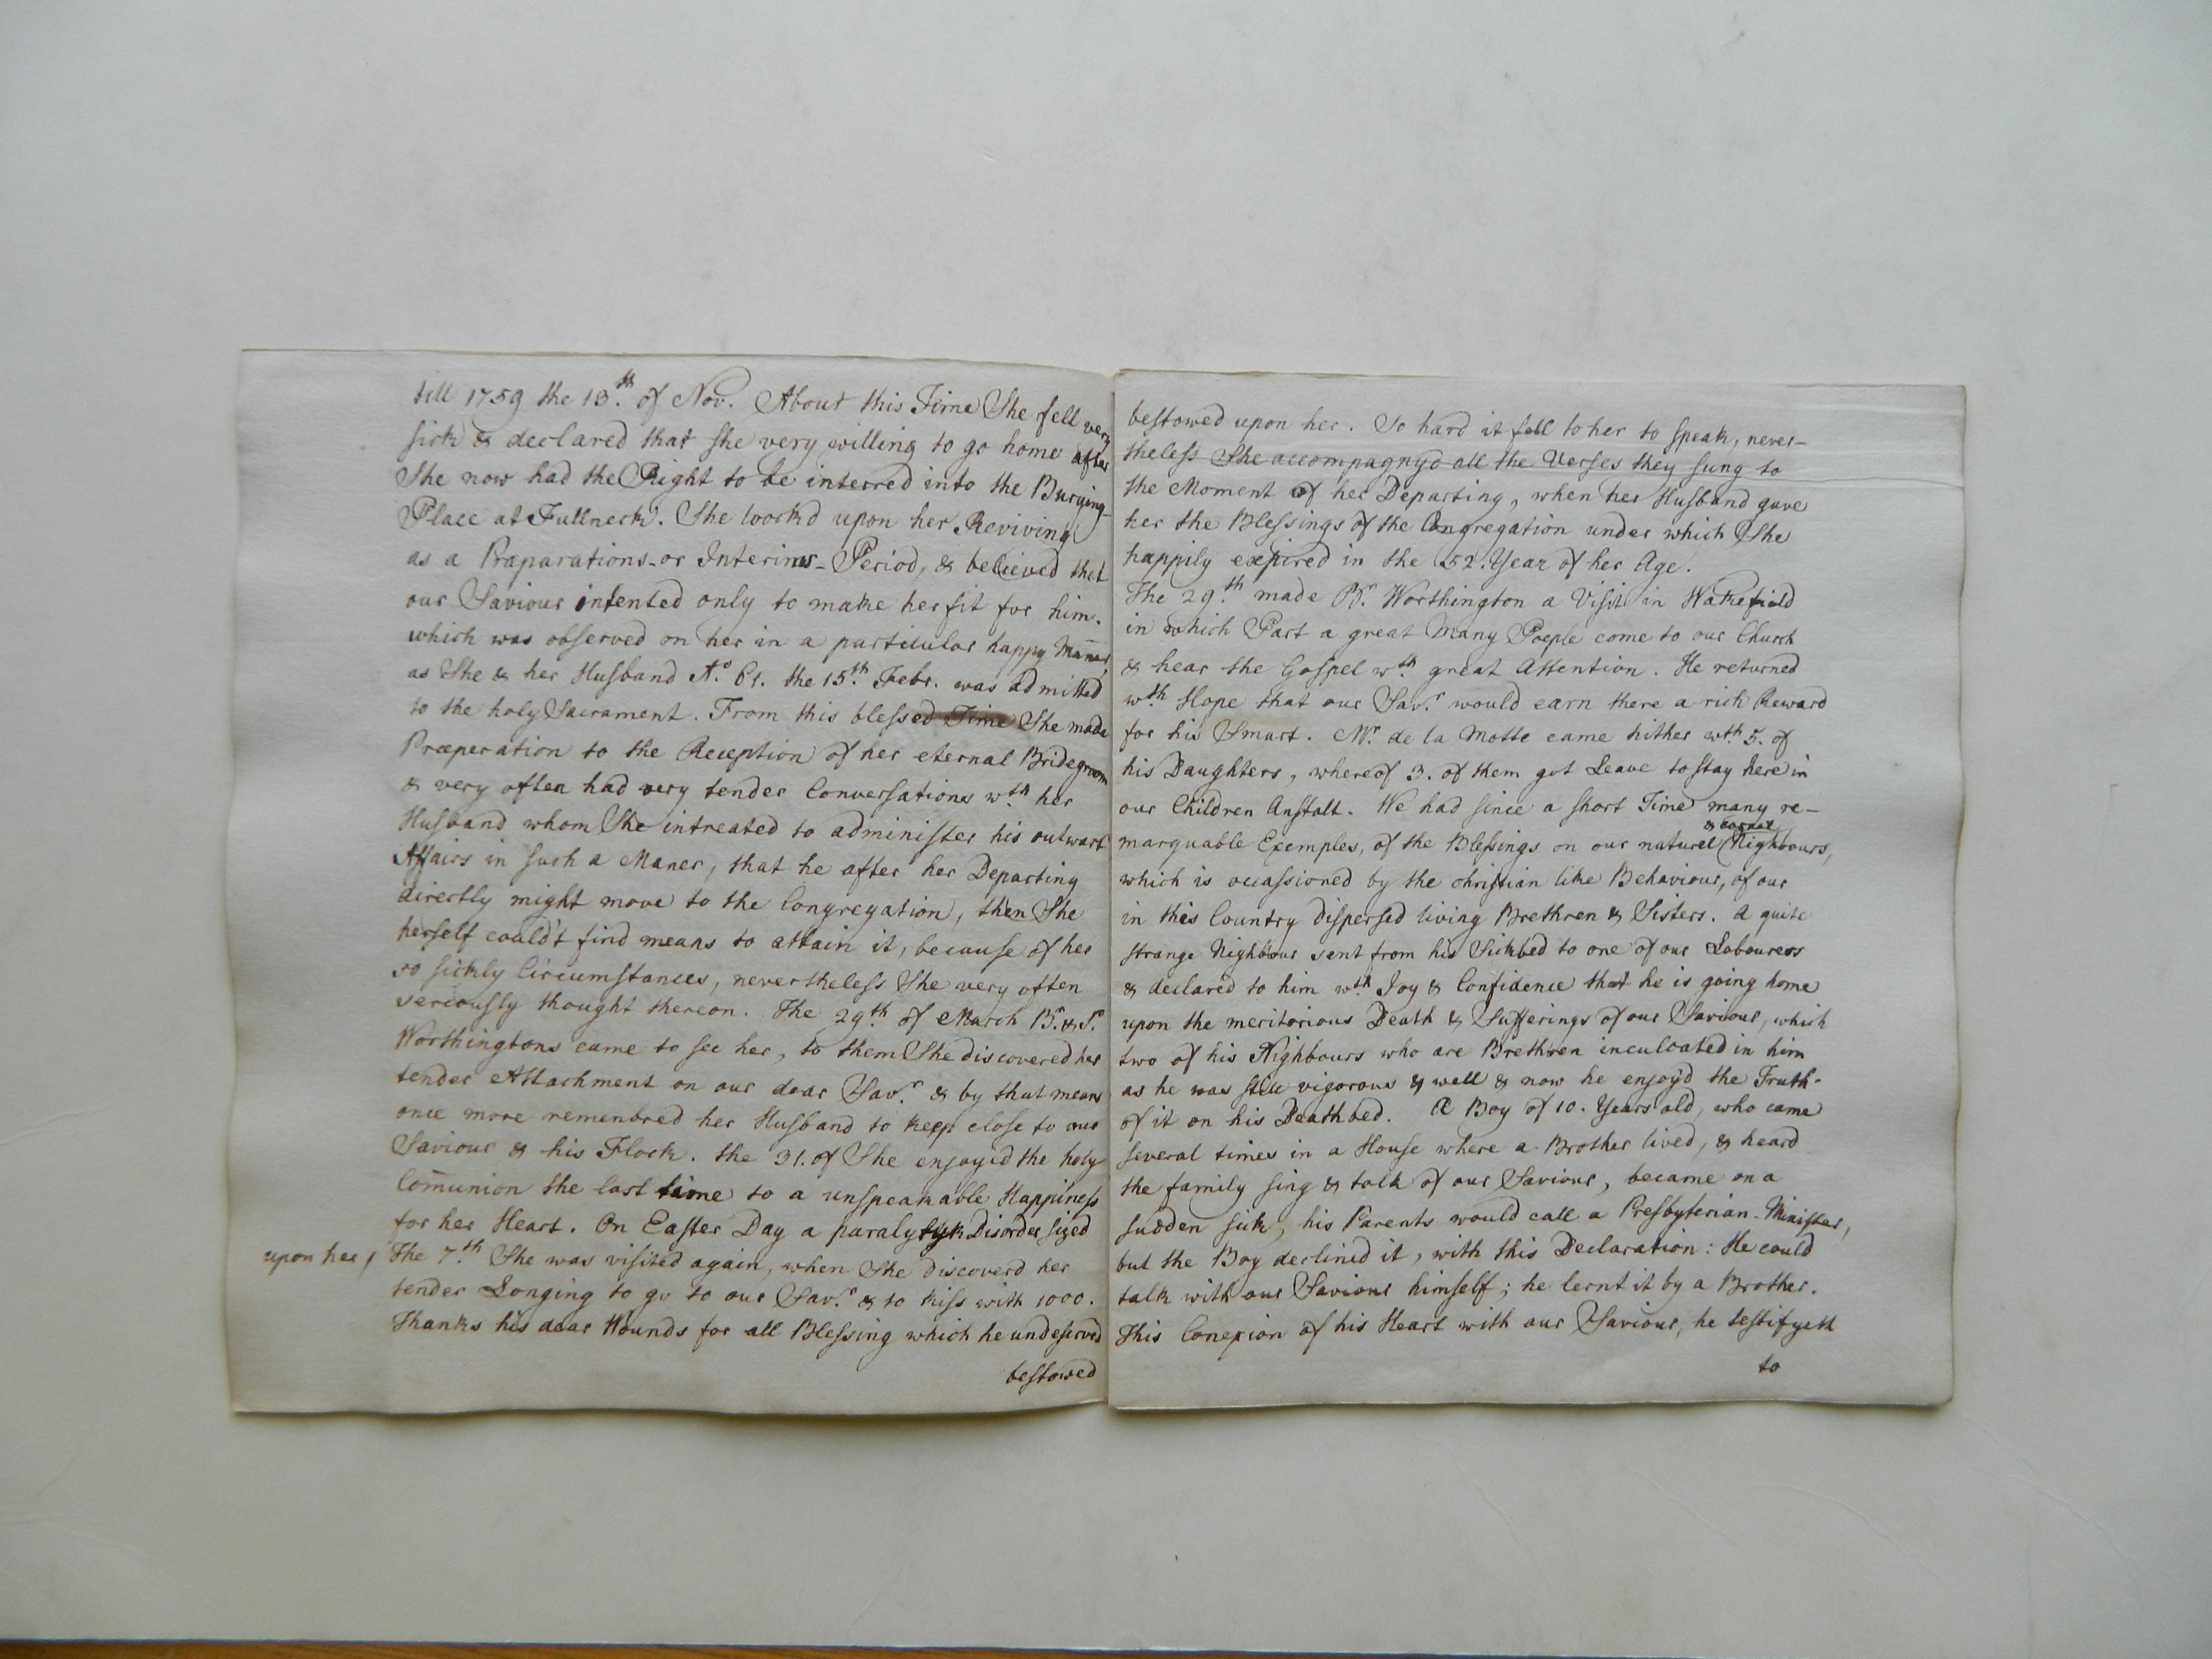 till 1759 the 13.th of Nov. About this Time She fell very
sick & declared that she very willing to go home after
She now had the Right to be interred into the Burying-
Place at Fullneck. She look'd upon her Reviving
as a Præparations-or Interims-Period, & believed that
our Saviour intented only to make her fit for him.
which was observed on her in a particular happy Maner,
as She & her Husband Ao. 61. the 15.th Febr. was admitted
to the holy Sacrament. From this blessed Time She made
Præperation to the Reception of her eternal Bridegroom
& very often had very tender Conversations wth. her
Husband whom She intreated to administer his outwart
Affairs in such a Maner, that he after her Departing
directly might move to the Congregation, then She
herself could't find means to attain it, because of her
so sickly Circumstances, nevertheless She very often
seriously thought thereon. The 29.th of March Br. & Sr.
Worthingtons came to see her, to them She discovered her
tender Attachment on our dear Savr. & by that means
once more remenbred her Husband to keep close to our
Saviour & his Flock. the 31. of She enjoy'd the holy
Com̄union the last time to a unspeakable Happiness
for her Heart. On Easter Day a paralytyk Disorder sized
upon her, The 7.th She was visited again, when She discoverd her
tender Longing to go to our Savr. & to kiss with 1000.
Thanks his dear Wounds for all Blessing which he undeserved
bestowed
bestowed upon her. So hard it fell to her to speak, never-
theless She accompagnyd all the Verses they sung to
the Moment of her Departing, when her Husband gave
her the Blessings of the Congregation under which She
happily expired in the 52. Year of her Age.
The 29.th made Br. Worthington a Visit in Wakefield
in which Part a great Many Poeple come to our Church
& hear the Gospel wth. great Attention. He returned
wth. Hope that our Savr. would earn there a rich Reward
for his Smart. Mr. de la Motte came hither wth. 5. of
his Daughters, whereof 3. of them got Leave to stay here in
our Children Anstalt. We had since a short Time many re-
marquable Exemples, of the Blessings on our naturel Nighbours,
which is occassioned by the christian like Behaviour, of our
in this Country dispersed living Brethren & Sisters. A quite
strange Nighbour sent from his Sickbed to one of our Labourers
& declared to him wth. Joy & Confidence that he is going home
upon the meritorious Death & Sufferings of our Saviour, which
two of his Nighbours who are Brethren inculcated in him
as he was still vigorous & well & now he enjoy'd the Truth
of it on his Deathbed. A Boy of 10. Years old, who came
several times in a House where a Brother lived, & heard
the family sing & talk of our Saviour, became on a
sudden sick, his Parents would call a Presbyterian-Minister,
but the Boy declined it, with this Declaration: He could
talk with our Saviour himself; he lernt it by a Brother.
This Conexion of his Heart with our Saviour, he testifyeth
to